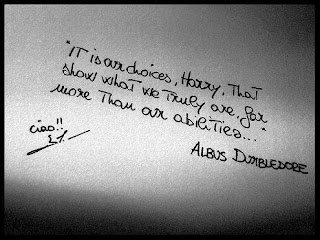 "IT is our choices, Harry, That
show what we Truly are, far
more Than our abilities...
ALBUS DUMBLEDORE
ciao!!